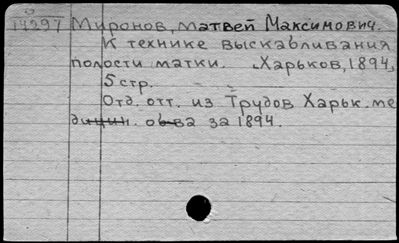 14297 Миронов, Матвей Максимович.
К технике выскабливания
полости матки. Харьков, 1894,
5 стр.
Отд. отт. из Трудов Харьк. ме
дицин. о-ва за 1894.